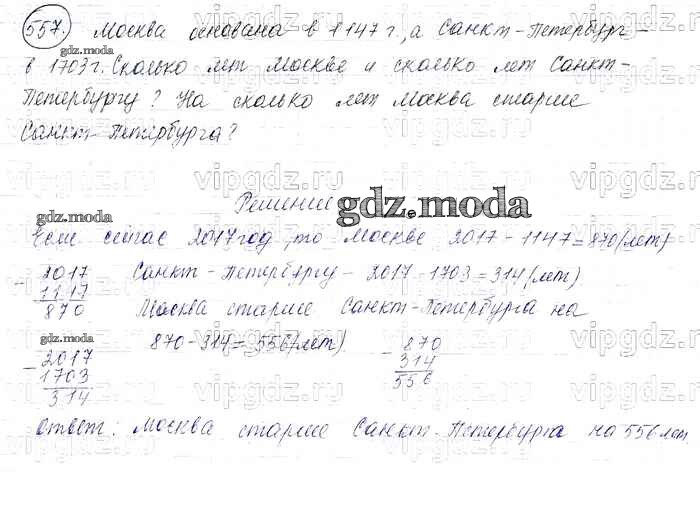 557. Москва основана в 1147 г, а Санкт-Петербург –
в 1703г. Сколько лет Москве и сколько лет Санкт-
Петербургу? На сколько лет Москва старше
Санкт-Петербурга?
Решение
Если сейчас 2017 год, то Москве 2017-1147=870(лет)
- 2017
1147
870
Санкт-Петербургу - 2017-1703=314(лет)
Москва старше Санкт-Петербурга на
870-314=556(лет)
- 2017
1703
314
- 870
314
556
Ответ: Москва старше Санкт-Петербурга на 556 лет.
gdz.moda
gdz.moda
gdz.moda
gdz.moda
vipgdz.ru